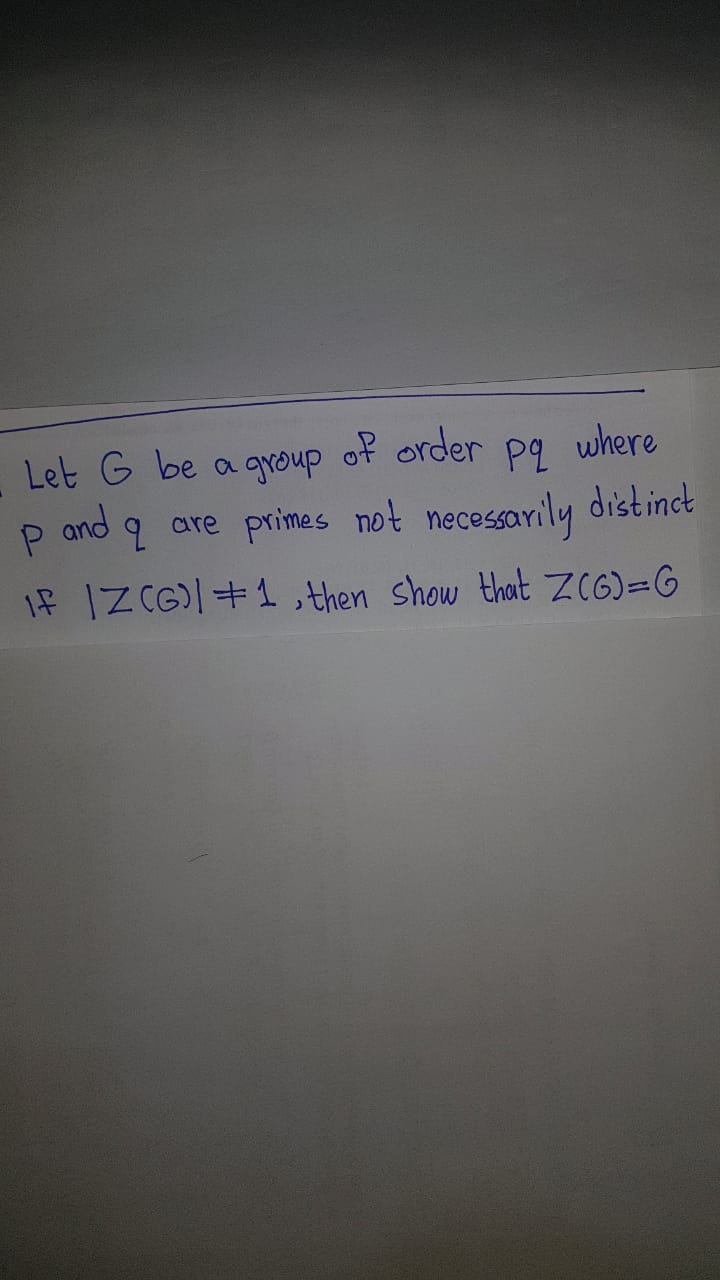 Let G be a group of order pq where
p and q are primes not necessarily distinct
If |Z(G)| ≠ 1 , then show that Z(G)=G